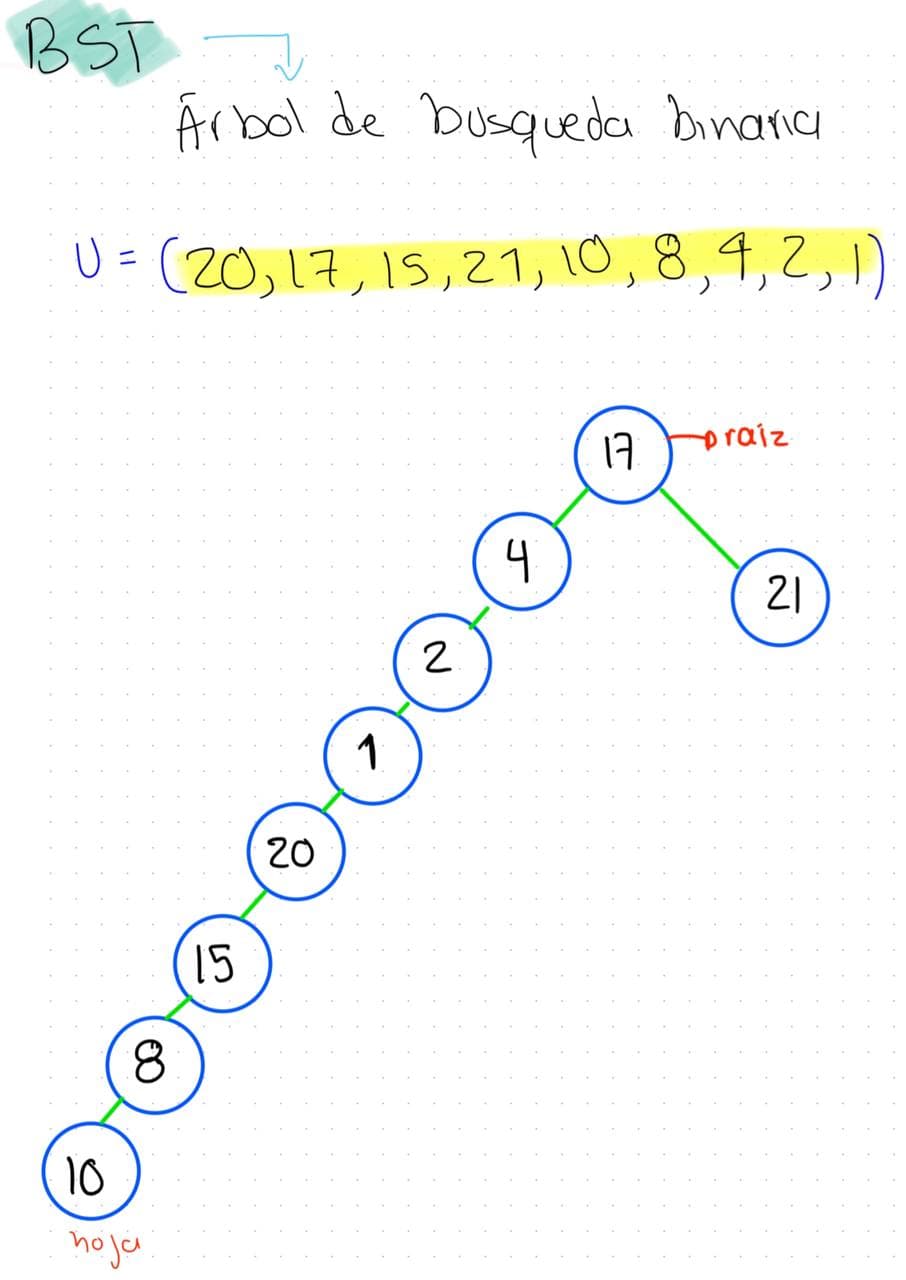 BST
Árbol de busqueda binaria
U = (20, 17, 15, 21, 10, 8, 4, 2, 1)
17 raíz
4
21
2
1
20
15
8
10
hoja